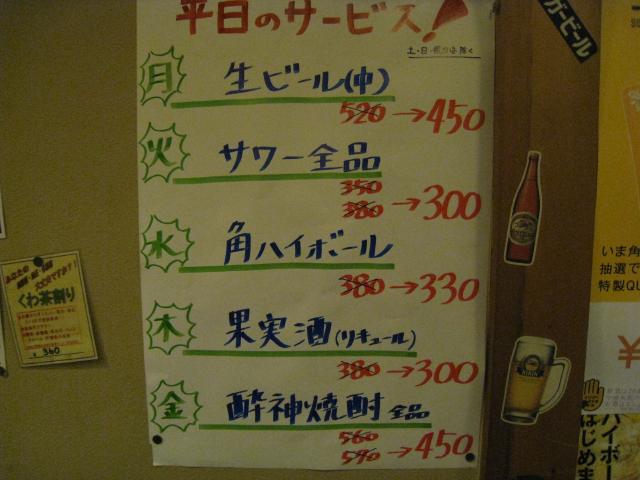 平日のサービス!
月 生ビール(中)
520→450
火 サワー全品
350
380→300
水 角ハイボール
380→330
木 果実酒(リキュール)
380→300
金 酔神焼酎 全品
560
590→450
くわ茶割り
¥360
ガービール
KIRIN
いま角
抽選で
特製QU
¥
ハイボー
はじめま